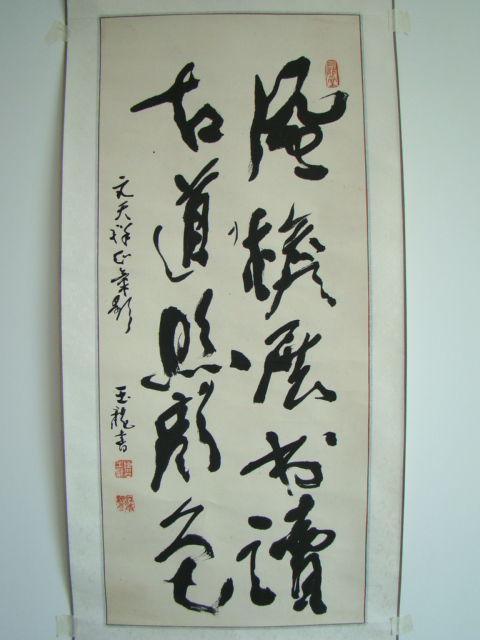 風檐展书讀
古道照顏色
文天祥正氣歌
玉龍書